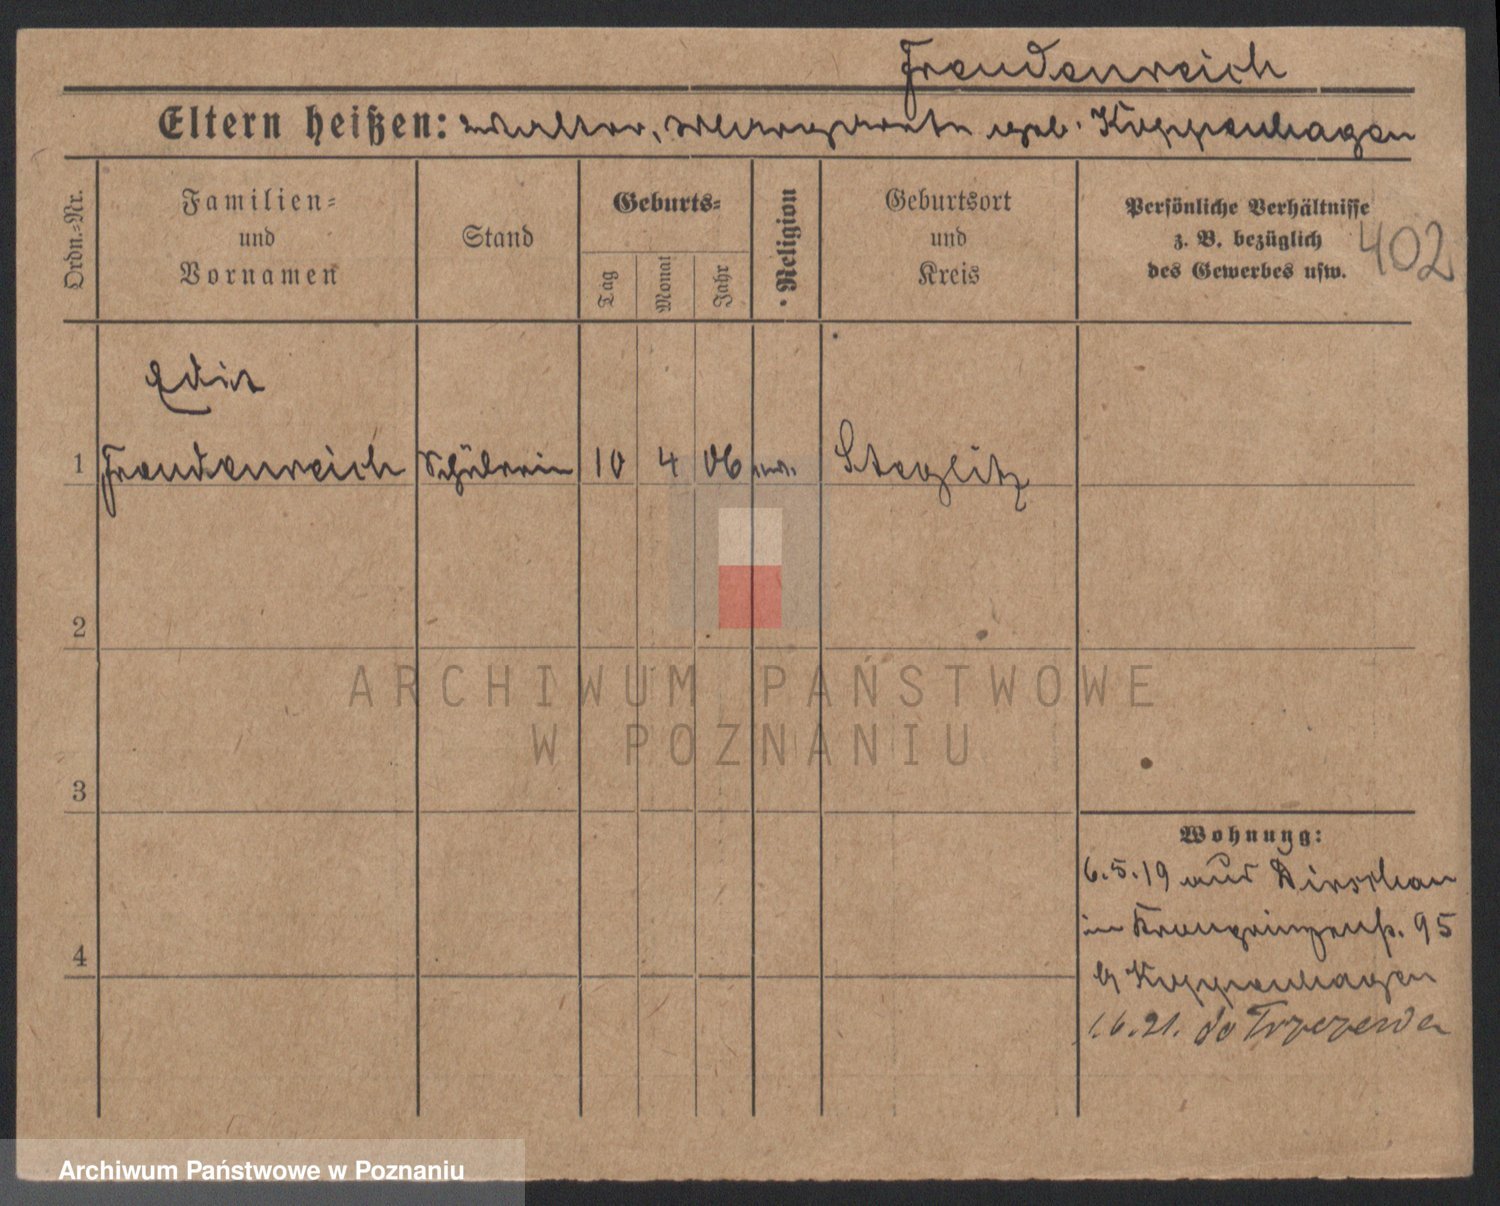 Freudenreich
Eltern heißen: Walter, Margarete geb. Koppenhagen
Ordn.-Nr.
Familien-
und
Vornamen
Stand
Geburts-
Tag
Monat
Jahr
Religion
Geburtsort
und
Kreis
Persönliche Verhältnisse
z. B. bezüglich
des Gewerbes usw.
402
Edit
1 Freudenreich Schülerin 10 4 06 Steglitz
2
3
4
Wohnung:
6.5.19 aus Dirschau
in Kronprinzenstr. 95
b/ Koppenhagen
1.6.21. do
ARCHIWUM PAŃSTWOWE
W POZNANIU
Archiwum Państwowe w Poznaniu